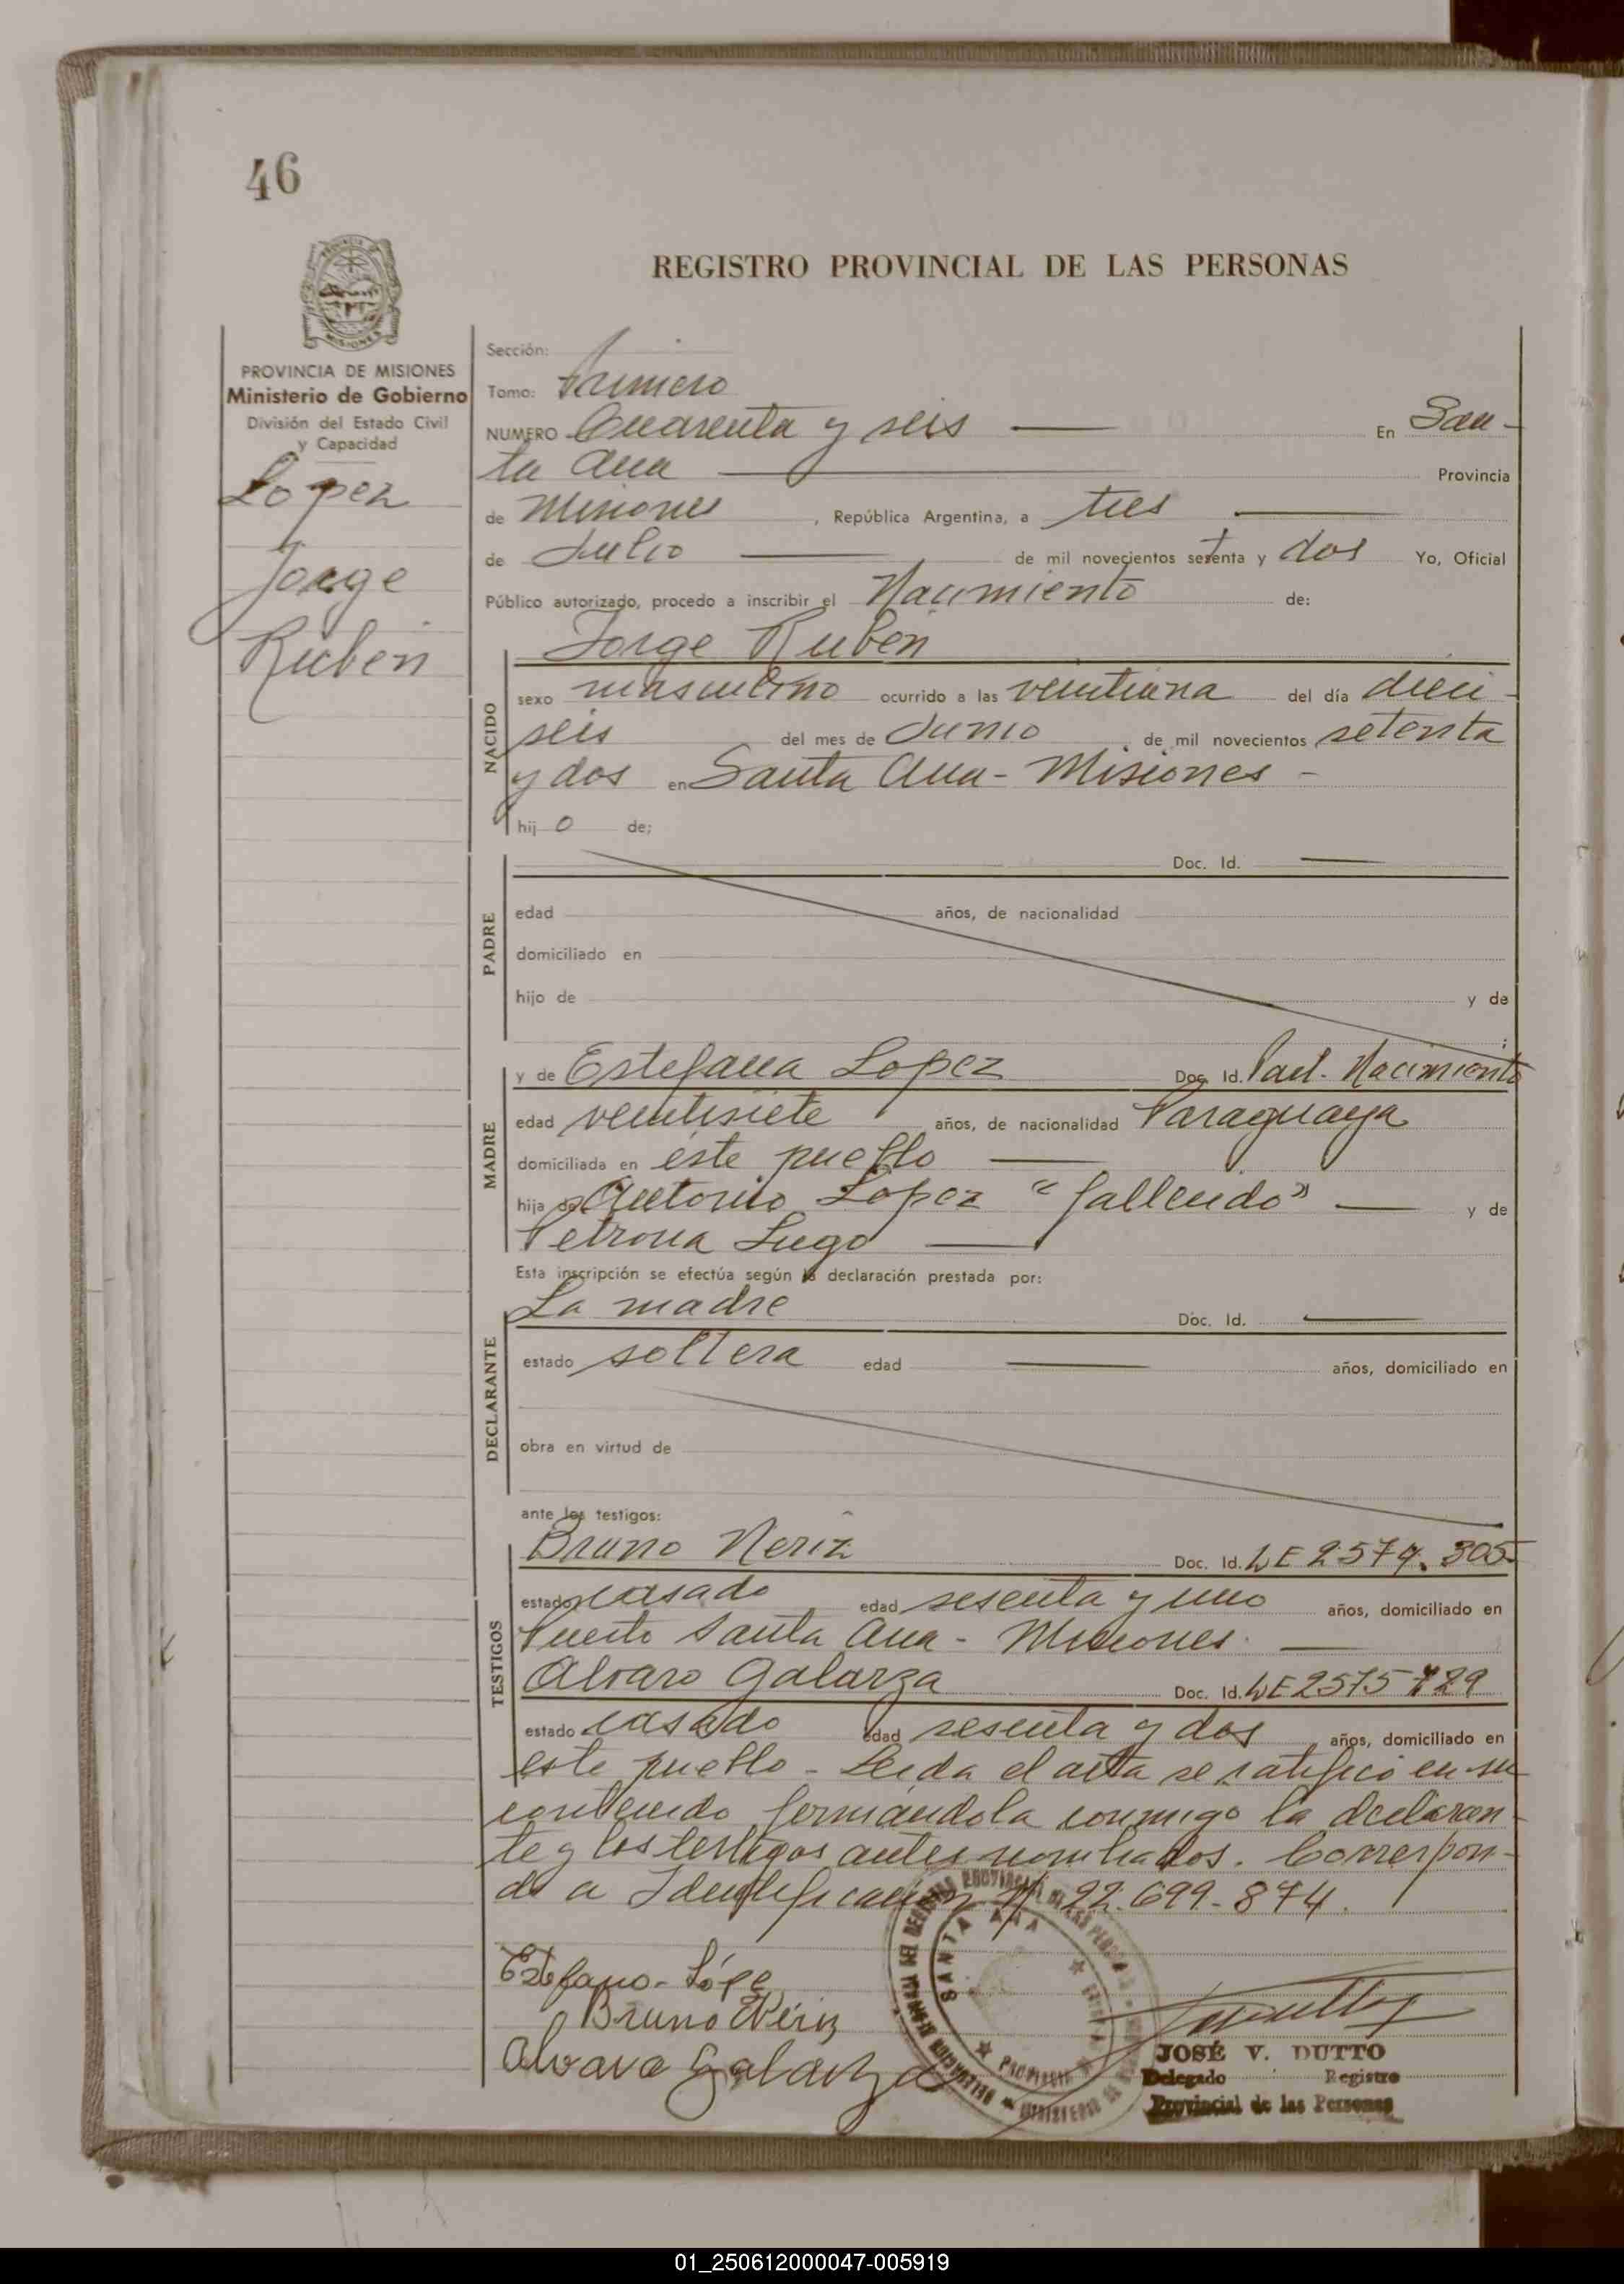 46
REGISTRO PROVINCIAL DE LAS PERSONAS
PROVINCIA DE MISIONES
Ministerio de Gobierno
División del Estado Civil
y Capacidad
Lopez
Jorge
Ruben
Sección:
Tomo: Primero
NUMERO Cuarenta y seis — En San-
ta Ana — Provincia
de Misiones , República Argentina, a tres —
de Julio — de mil novecientos setenta y dos Yo, Oficial
Público autorizado, procedo a inscribir el Nacimiento de:
Jorge Ruben
NACIDO
sexo masculino ocurrido a las veintiuna del día dieci-
seis del mes de Junio de mil novecientos setenta
y dos en Santa Ana - Misiones -
hij o de;
PADRE
Doc. Id. —
edad años, de nacionalidad
domiciliado en
hijo de y de
;
MADRE
y de Estefana Lopez Doc. Id. Part. Nacimiento
edad veintisiete años, de nacionalidad Paraguaya
domiciliada en éste pueblo —
hija de Antonio Lopez "fallecido" — y de
Petrona Lugo —
Esta inscripción se efectúa según la declaración prestada por:
DECLARANTE
La madre Doc. Id. —
estado soltera edad — años, domiciliado en
obra en virtud de
ante los testigos:
TESTIGOS
Bruno Neriz Doc. Id. LE 2574.305
estado casado edad sesenta y uno años, domiciliado en
Puerto Santa Ana - Misiones. —
Alvaro Galarza Doc. Id. LE 2575 729
estado casado edad sesenta y dos años, domiciliado en
este pueblo - Leida el acta se ratificó en su
contenido firmandola conmigo la declaran-
te y los testigos antes nombrados. Correspon-
de a Identificación Nº 22.699.874.
Estefana - Lópe
Bruno Neriz
Alvaro Galarza
SANTA ANA
JOSÉ V. DUTTO
Delegado Registro
Provincial de las Personas
01_250612000047-005919